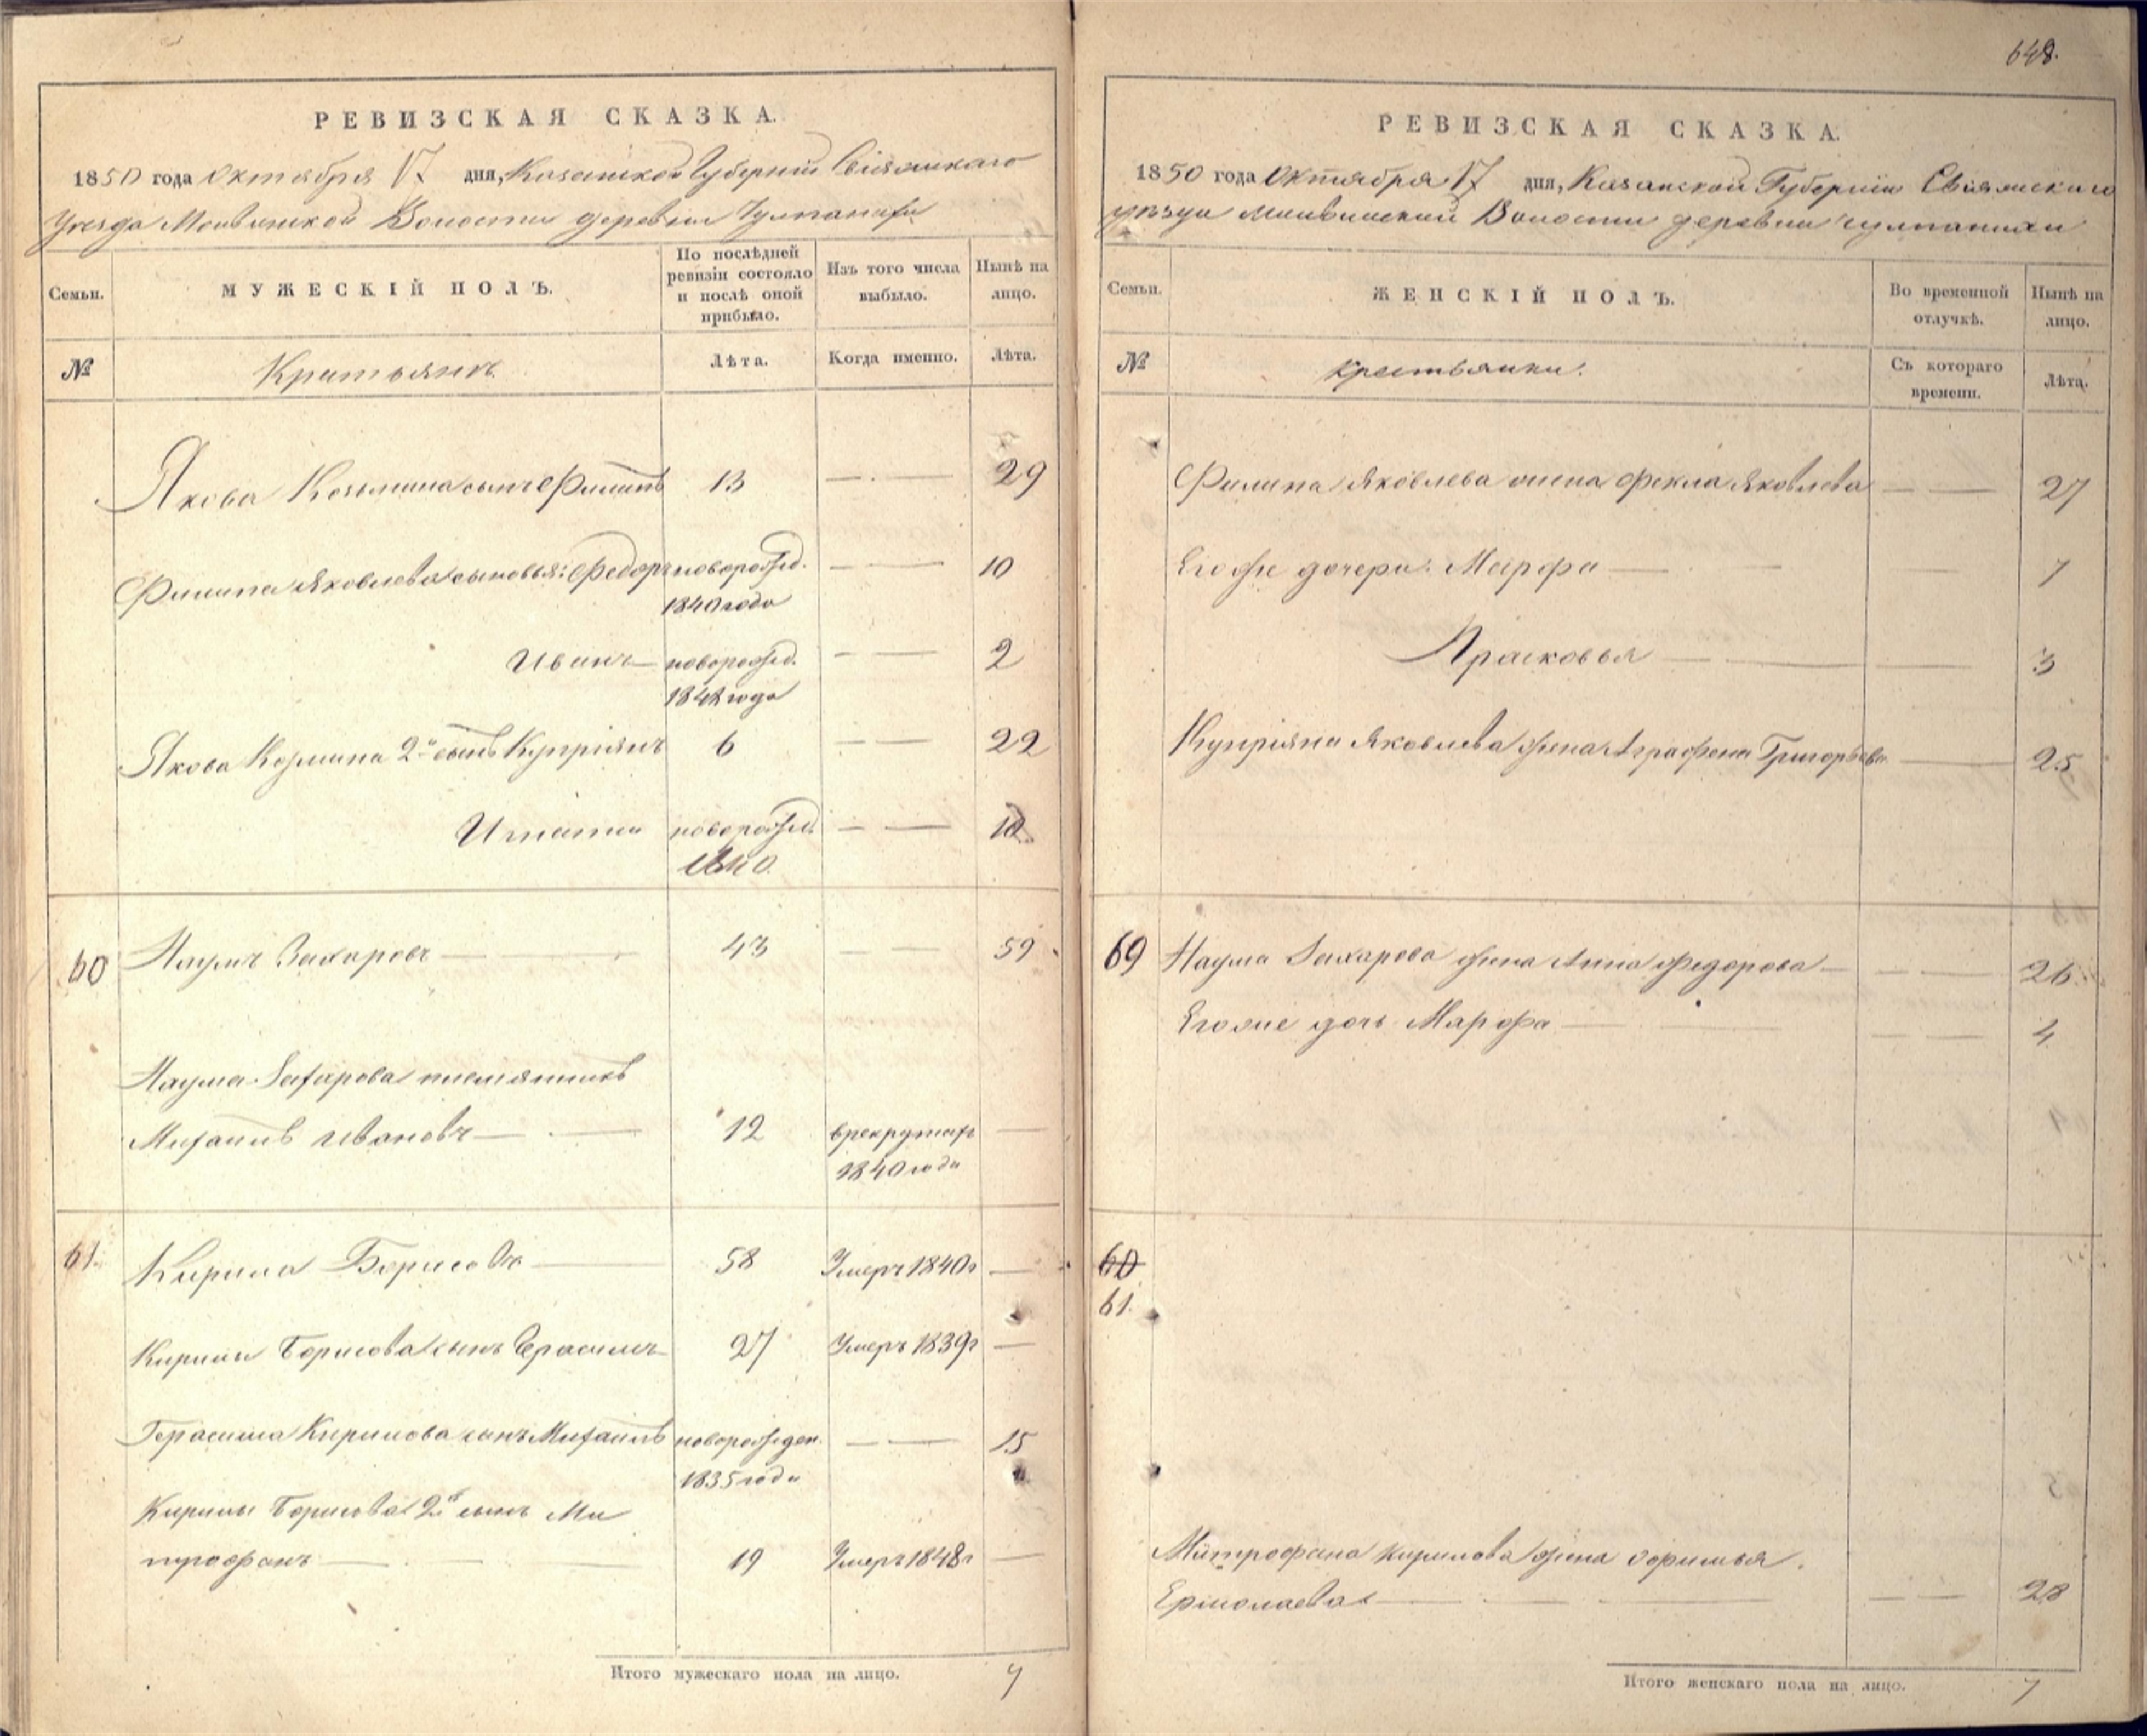 648.
РЕВИЗСКАЯ СКАЗКА.
1850 года Октября 17 дня, Казанской Губернии Свіяжскаго
уезда Моивинской Волости деревни Чулпанихи
Семьи.
МУЖЕСКІЙ ПОЛЪ.
По послѣдней
ревизіи состояло
и послѣ оной
прибыло.
Изъ того числа
выбыло.
Нынѣ на
лицо.
№
Крестьянъ
Лѣта.
Когда именно.
Лѣта.
Якова Козьмина сынъ Филипъ 13 — — 29
Филипа Яковлева сыновья: Федоръ новорожд. — — 10
1840 года
Иванъ — новорожд. — — 2
1848 года
Якова Козмина 2й сынъ Купріянъ 6 — — 22
Игнатий новорожд. — — 10
1840.
60 Наумъ Захаровъ — — 43 — — 59
Наума Захарова племянникъ
Михаилъ Ивановъ — — 12 в рекрутахъ —
1840 года
61. Кирила Борисовъ — 58 Умеръ 1840г —
Кирилы Борисова сынъ Герасимъ 27 Умеръ 1839г —
Герасима Кирилова сынъ Михаилъ новорожден. — — 15
1835 года
Кирилы Борисова 2й сынъ Ми
трофанъ — — — 19 Умеръ 1848г —
Итого мужескаго пола на лицо. 7
РЕВИЗСКАЯ СКАЗКА.
1850 года Октября 17 дня, Казанской Губерніи Свіяжскаго
уѣзда Волости деревни Чулпанихи
Семьи.
ЖЕНСКІЙ ПОЛЪ.
Во временной
отлучкѣ.
Нынѣ на
лицо.
№
Крестьянки.
Съ котораго
времени.
Лѣта.
Филипа Яковлева жена Фекла Яковлева — — 27
Его же дочери: Марфа — — — 7
Прасковья — — — 3
Купріяна Яковлева жена Аграфена Григорьева — 25
69 Наума Захарова жена Анна Федорова — — — 26
Его же дочь Марфа — — — 4
60
61.
Митрофана Кирилова жена Офимья
Ермолаева — — — — — 28
Итого женскаго пола на лицо. 7